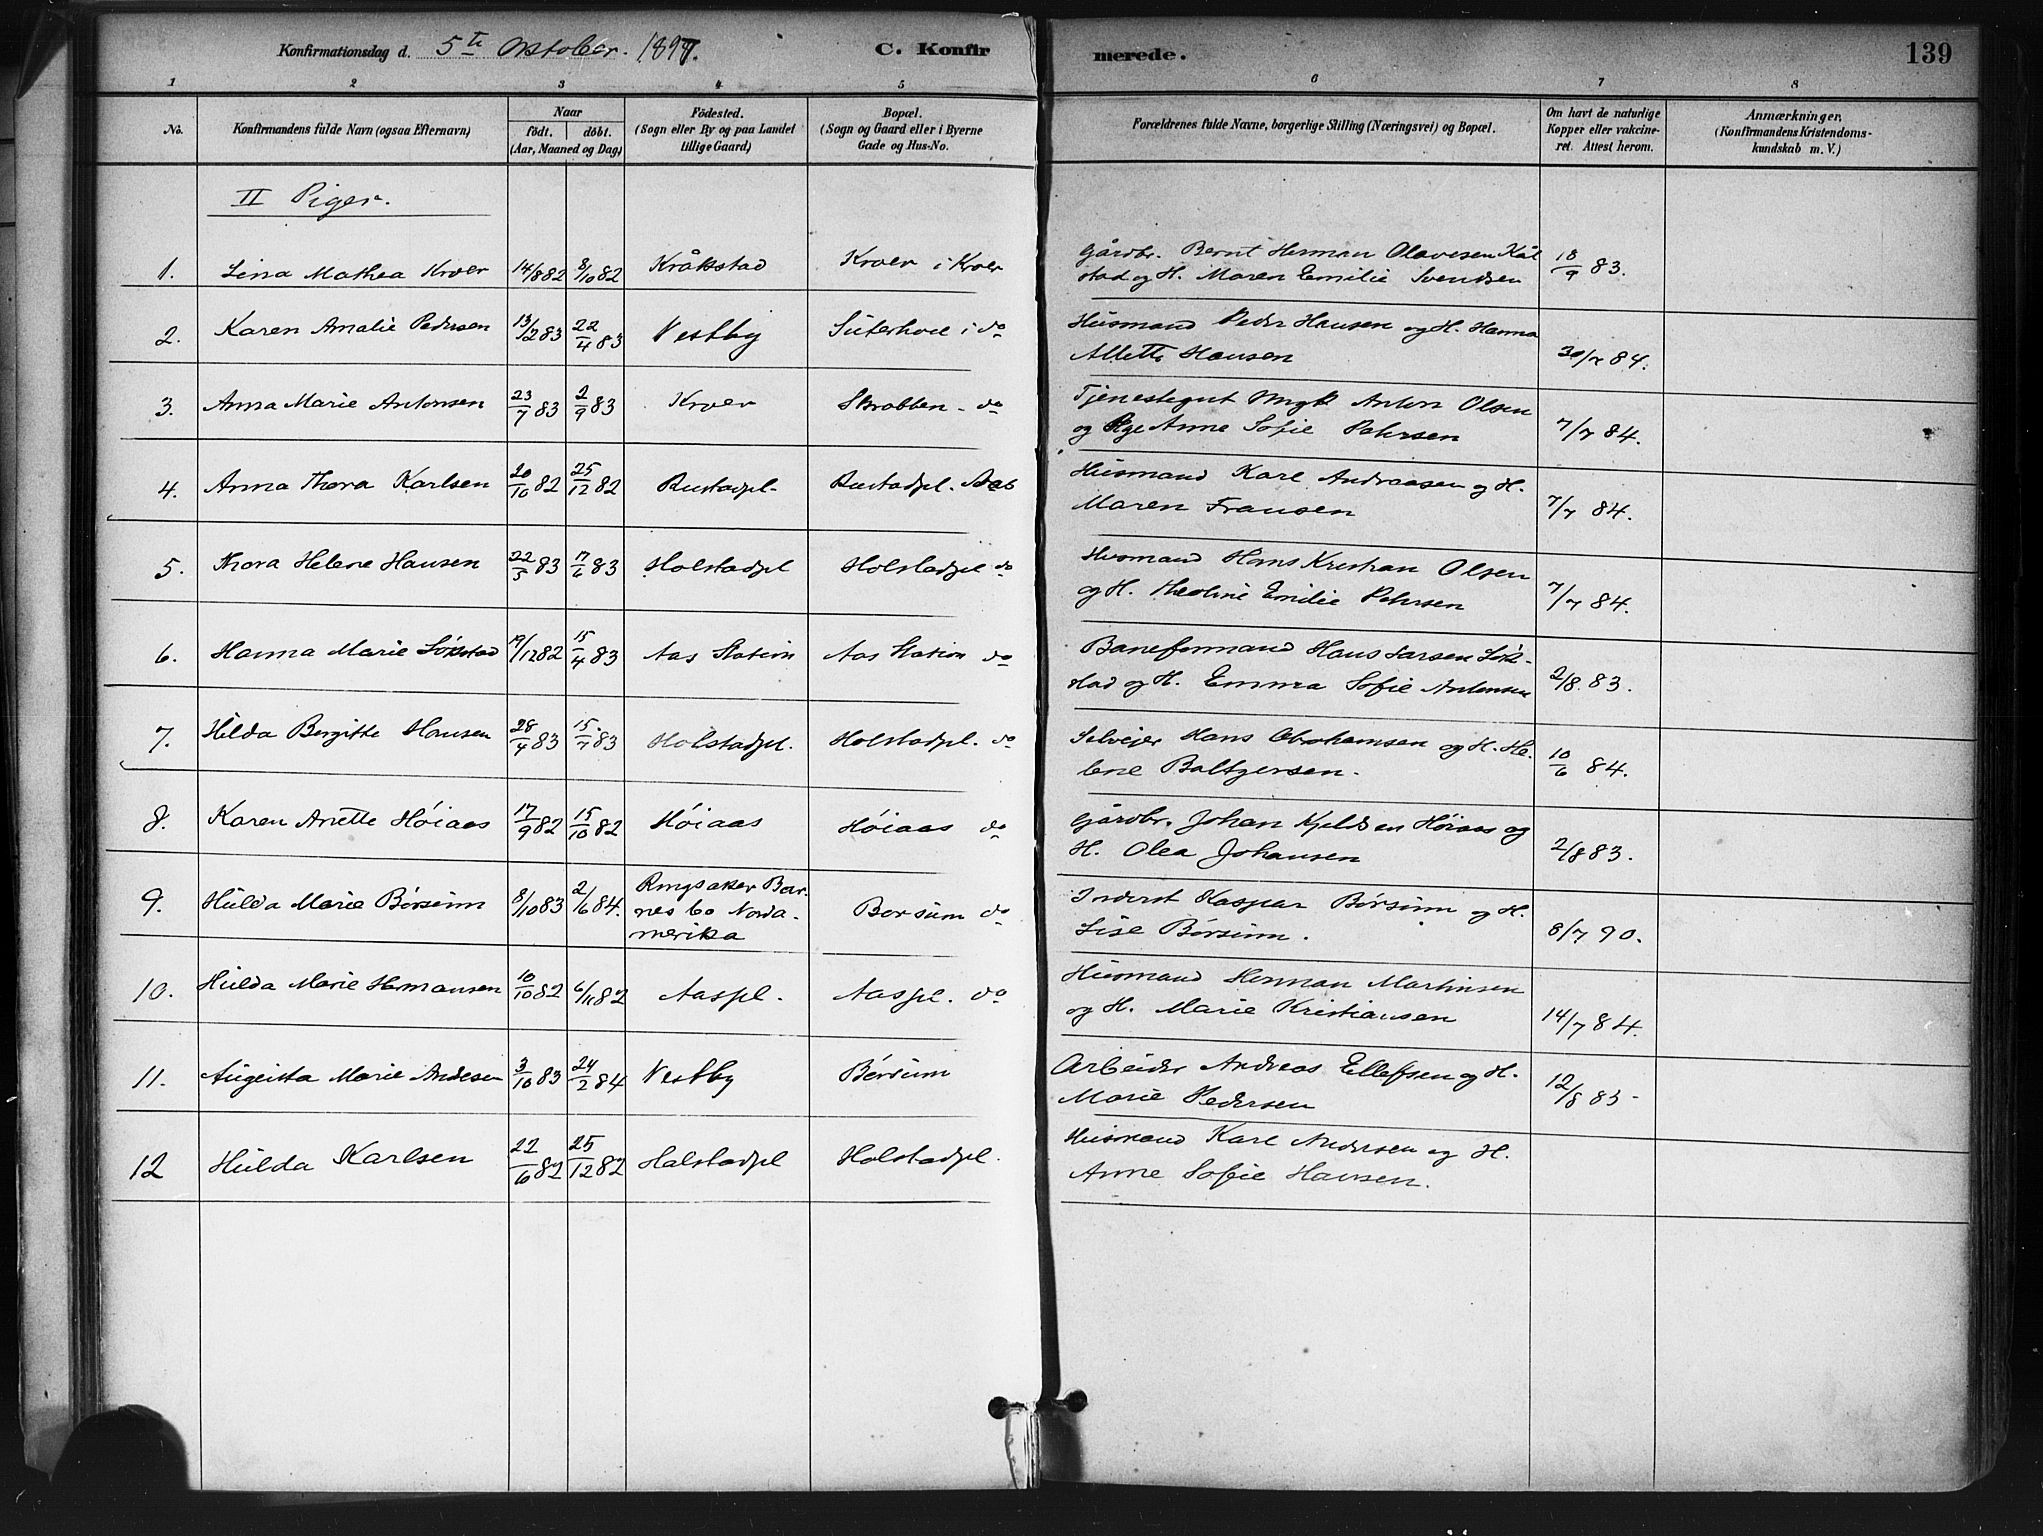 Konfirmationsdag d. 5te October. 1897.
C. Konfirmerede.
139
1 2 3 4 5 6 7 8
No.
Konfirmandens fulde Navn (ogsaa Efternavn)
Naar
födt. döbt.
(Aar, Maaned og Dag)
Födested.
(Sogn eller By og paa Landet
tillige Gaard)
Bopæl.
(Sogn og Gaard eller i Byerne
Gade og Hus-No.
Forældrenes fulde Navne, borgerlige Stilling (Næringsvei) og Bopæl.
Om havt de naturlige
Kopper eller vakcine-
ret. Attest herom.
Anmærkninger.
(Konfirmandens Kristendoms-
kundskab m. V.)
II Piger.
1. Lina Mathea Kroer 14/8 82 8/10 82 Kråkstad Kroer i Kroer
Gårdbr. Bernt Herman Olavesen Kål
stad og H. Maren Emilie Svendsen 18/9 83.
2. Karen Amalie Pedersen 13/12 83 22/4 83 Vestby i do
Husmand Peder Hansen og H. Hanna
Hansen 84.
3. Anna Marie Antonsen 23/7 83 2/9 83 Kroer Skrabben - do
Tjenestegut Ungk Anton Olsen
og Pge Anne Sofie Petersen 7/7 84.
4. Anna Thora Karlsen 20/10 82 25/12 82 Rustadpl. Rustadpl. Aas
Husmand Karl Andreasen og H.
Maren Fransen 7/7 84.
5. Thora Helene Hansen 22/5 83 17/6 83 Holstadpl Holstadpl do
Husmand Hans Kristian Olsen
og H. Theoline Emilie Petersen 7/7 84.
6. Hanna Marie Sökstad 19/12 82 15/4 83 Aas Station Aas Station do
Baneformand Hans Larsen Sök-
stad og H. Emma Sofie Antonsen 2/8. 83.
7. Hilda Bergitte Hansen 28/4 83 15/7 83 Holstadpl. Holstadpl. do
Selveier Hans Abrahamsen og H. He-
lene Baltzersen. 10/6 84.
8. Karen Anette Höiaas 17/9 82 15/10 82 Höiaas Höiaas do
Gårdbr. Johan Kjeldsen Höiaas og
H. Olea Johansen 2/8 83.
9. Hulda Marie Börsum 8/10 83 2/6 84. Ringsaker Bar-
nes Co Norda-
merika Borsum do
Inderst Kaspar Börsum og H.
Lise Börsum. 8/7 90.
10. Hulda Marie Hermansen 10/10 82 6/11 82 Aaspl. Aaspl. do
Husmand Herman Martinsen
og H. Marie Kristiansen 14/7 84.
11. Augusta Marie Andesen 3/10 83 24/2 84 Vestby Börsum
Arbeider Andreas Ellefsen og H.
Marie Pedersen 12/8 85-
12 Hulda Karlsen 22/10 82 25/12 82 Holstadpl Holstadpl.
Husmand Karl Andersen og H.
Anne Sofie Hansen.